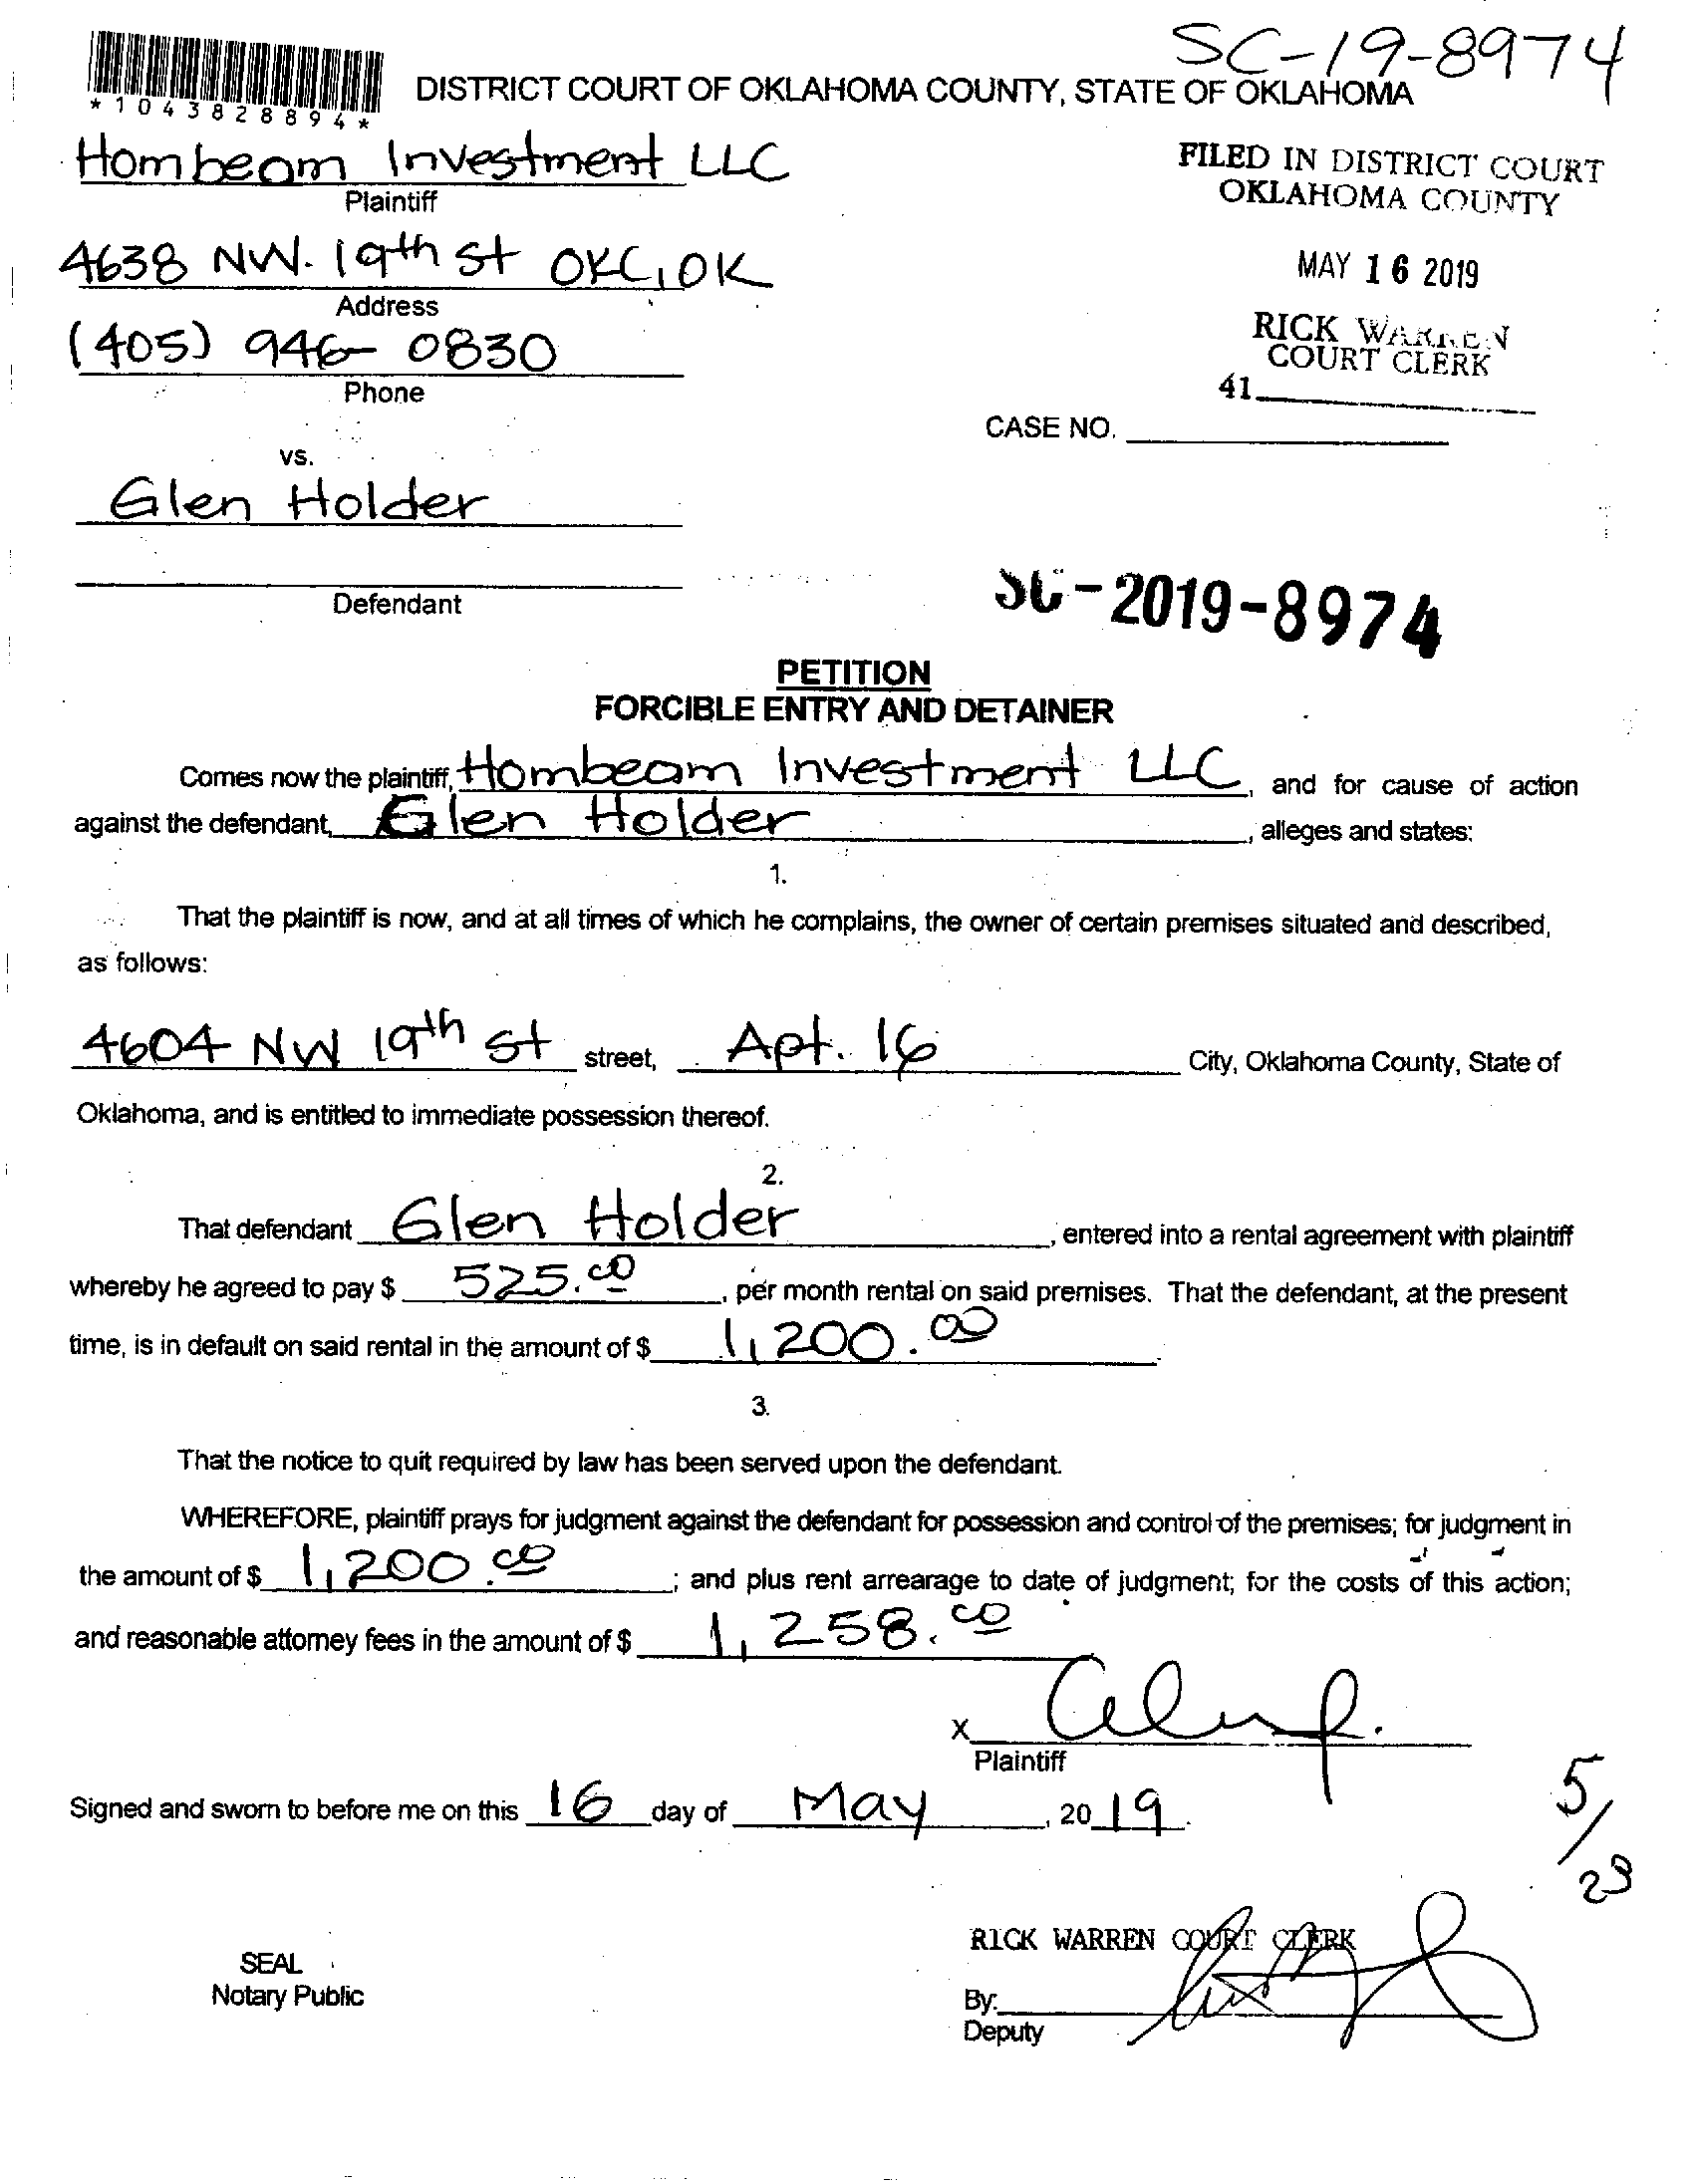 SC-19-8974
*1043828894*
DISTRICT COURT OF OKLAHOMA COUNTY, STATE OF OKLAHOMA
Hombeam Investment LLC
Plaintiff
FILED IN DISTRICT COURT
OKLAHOMA COUNTY
4638 NW. 19th St OKC, OK
Address
MAY 16 2019
(405) 946-0830
Phone
RICK WARREN
COURT CLERK
41
CASE NO.
vs.
Glen Holder
Defendant
SC-2019-8974
PETITION
FORCIBLE ENTRY AND DETAINER
Comes now the plaintiff, Hombeam Investment LLC, and for cause of action
against the defendant, Glen Holder, alleges and states:
1.
That the plaintiff is now, and at all times of which he complains, the owner of certain premises situated and described,
as follows:
4604 NW 19th St street, Apt. 16 City, Oklahoma County, State of
Oklahoma, and is entitled to immediate possession thereof.
2.
That defendant Glen Holder, entered into a rental agreement with plaintiff
whereby he agreed to pay $ 525.00, per month rental on said premises. That the defendant, at the present
time, is in default on said rental in the amount of $ 1,200.00
3.
That the notice to quit required by law has been served upon the defendant.
WHEREFORE, plaintiff prays for judgment against the defendant for possession and control of the premises; for judgment in
the amount of $ 1,200.00; and plus rent arrearage to date of judgment; for the costs of this action;
and reasonable attorney fees in the amount of $ 1,258.00
X
Plaintiff
Signed and sworn to before me on this 16 day of May, 2019.
5/23
RICK WARREN COURT CLERK
SEAL
Notary Public
By:
Deputy